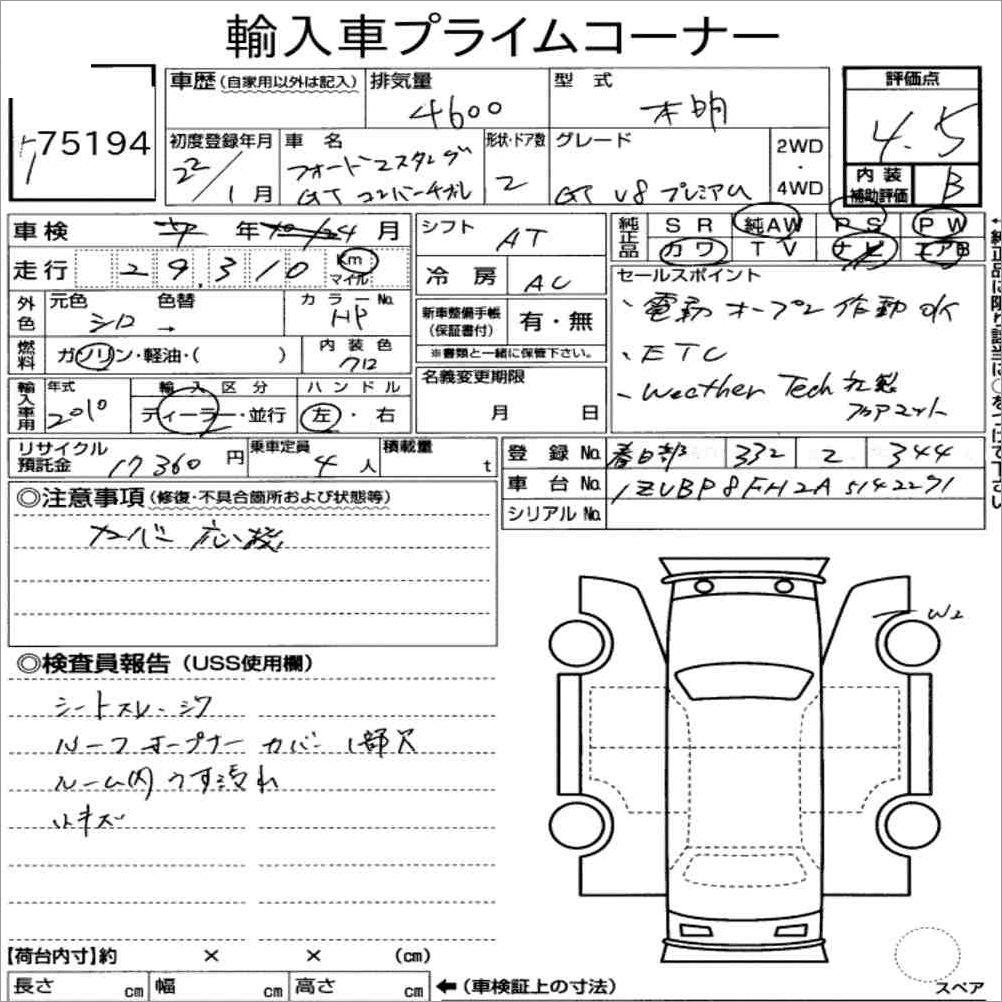 輸入車プライムコーナー
75194
車歴(自家用以外は記入) 排気量 4600 型式 不明
評価点 4.5
初度登録年月 22/1月
車名 フォードマスタング GT コンバーチブル
形状・ドア数 2
グレード GT V8 プレミアム
2WD・4WD
内装補助評価 B
車検 年 月
走行 29,310 Km マイル
シフト AT
冷房 AC
純正品 SR 純AW PS PW
カワ TV ナビ エアB
外色 元色 シロ 色替 →
カラーNo. HP
燃料 ガソリン・軽油・( )
内装色 クロ
新車整備手帳(保証書付) 有・無
※書類と一緒に保管下さい。
セールスポイント
、電動オープン作動OK
、ETC
、Weather Tech 社製
フロアマット
輸入車用 年式 2010
輸入区分 ディーラー・並行
ハンドル 左・右
名義変更期限 月 日
リサイクル預託金 17360円
乗車定員 4人
積載量 t
登録No. 春日部 332 2 344
車台No. 1ZVBP8FH2A5142271
シリアルNo.
←純正品に限り該当に○をつけて下さい
◎注意事項(修復・不具合箇所および状態等)
カバー
◎検査員報告(USS使用欄)
シートスレ・シワ
ルーフオープナーカバー1部欠
ルーム内うす汚れ
小キズ
W2
【荷台内寸】約 × × (cm)
長さ cm 幅 cm 高さ cm ←(車検証上の寸法)
スペア